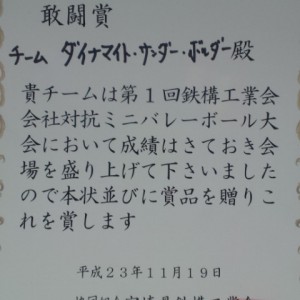 敢闘賞
チーム ダイナマイト・サンダー・ボルダー殿
貴チームは第１回鉄構工業会
会社対抗ミニバレーボール大
会において成績はさておき会
場を盛り上げて下さいました
ので本状並びに賞品を贈りこ
れを賞します
平成２３年１１月１９日